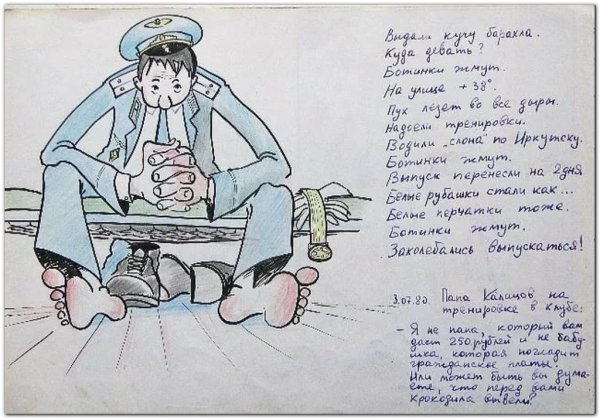 Выдали кучу барахла.
Куда девать?
Ботинки жмут.
На улице +38°.
Пух лезет во все дыры.
Надоели тренировки.
Водили "слона" по Иркутску.
Ботинки жмут.
Выпуск перенесли на 2 дня
Белые рубашки стали как...
Белые перчатки тоже.
Ботинки жмут.
Заколебались выпускаться!
3.07.80. Папа Калицов на
тренировке в клубе:
- Я не папа, который вам
даст 250 рублей и не бабу-
шка, которая погладит
гражданское платье.
Или может быть вы дума-
ете, что перед вами
крокодила вывели?